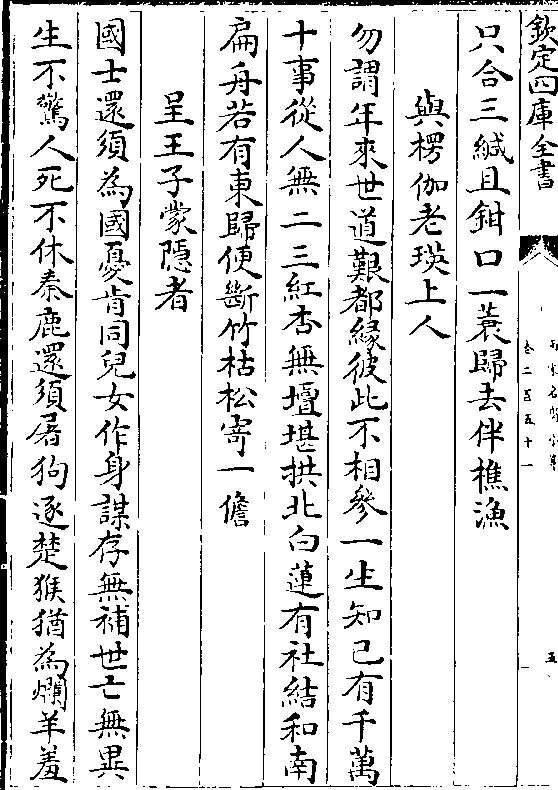 欽定四庫全書
卷二百五十一
五
只合三緘且鉗口一蓑歸去伴樵漁
與楞伽老瑛上人
勿謂年來世道艱都緣彼此不相參一生知己有千萬
十事從人無二三紅杏無壇堪拱北白蓮有社結和南
扁舟若有東歸便斷竹枯松寄一儋
呈王子蒙隱者
國士還須為國憂肯同兒女作身謀存無補世亡無異
生不驚人死不休秦鹿還須屠狗逐楚猴猶為爛羊羞